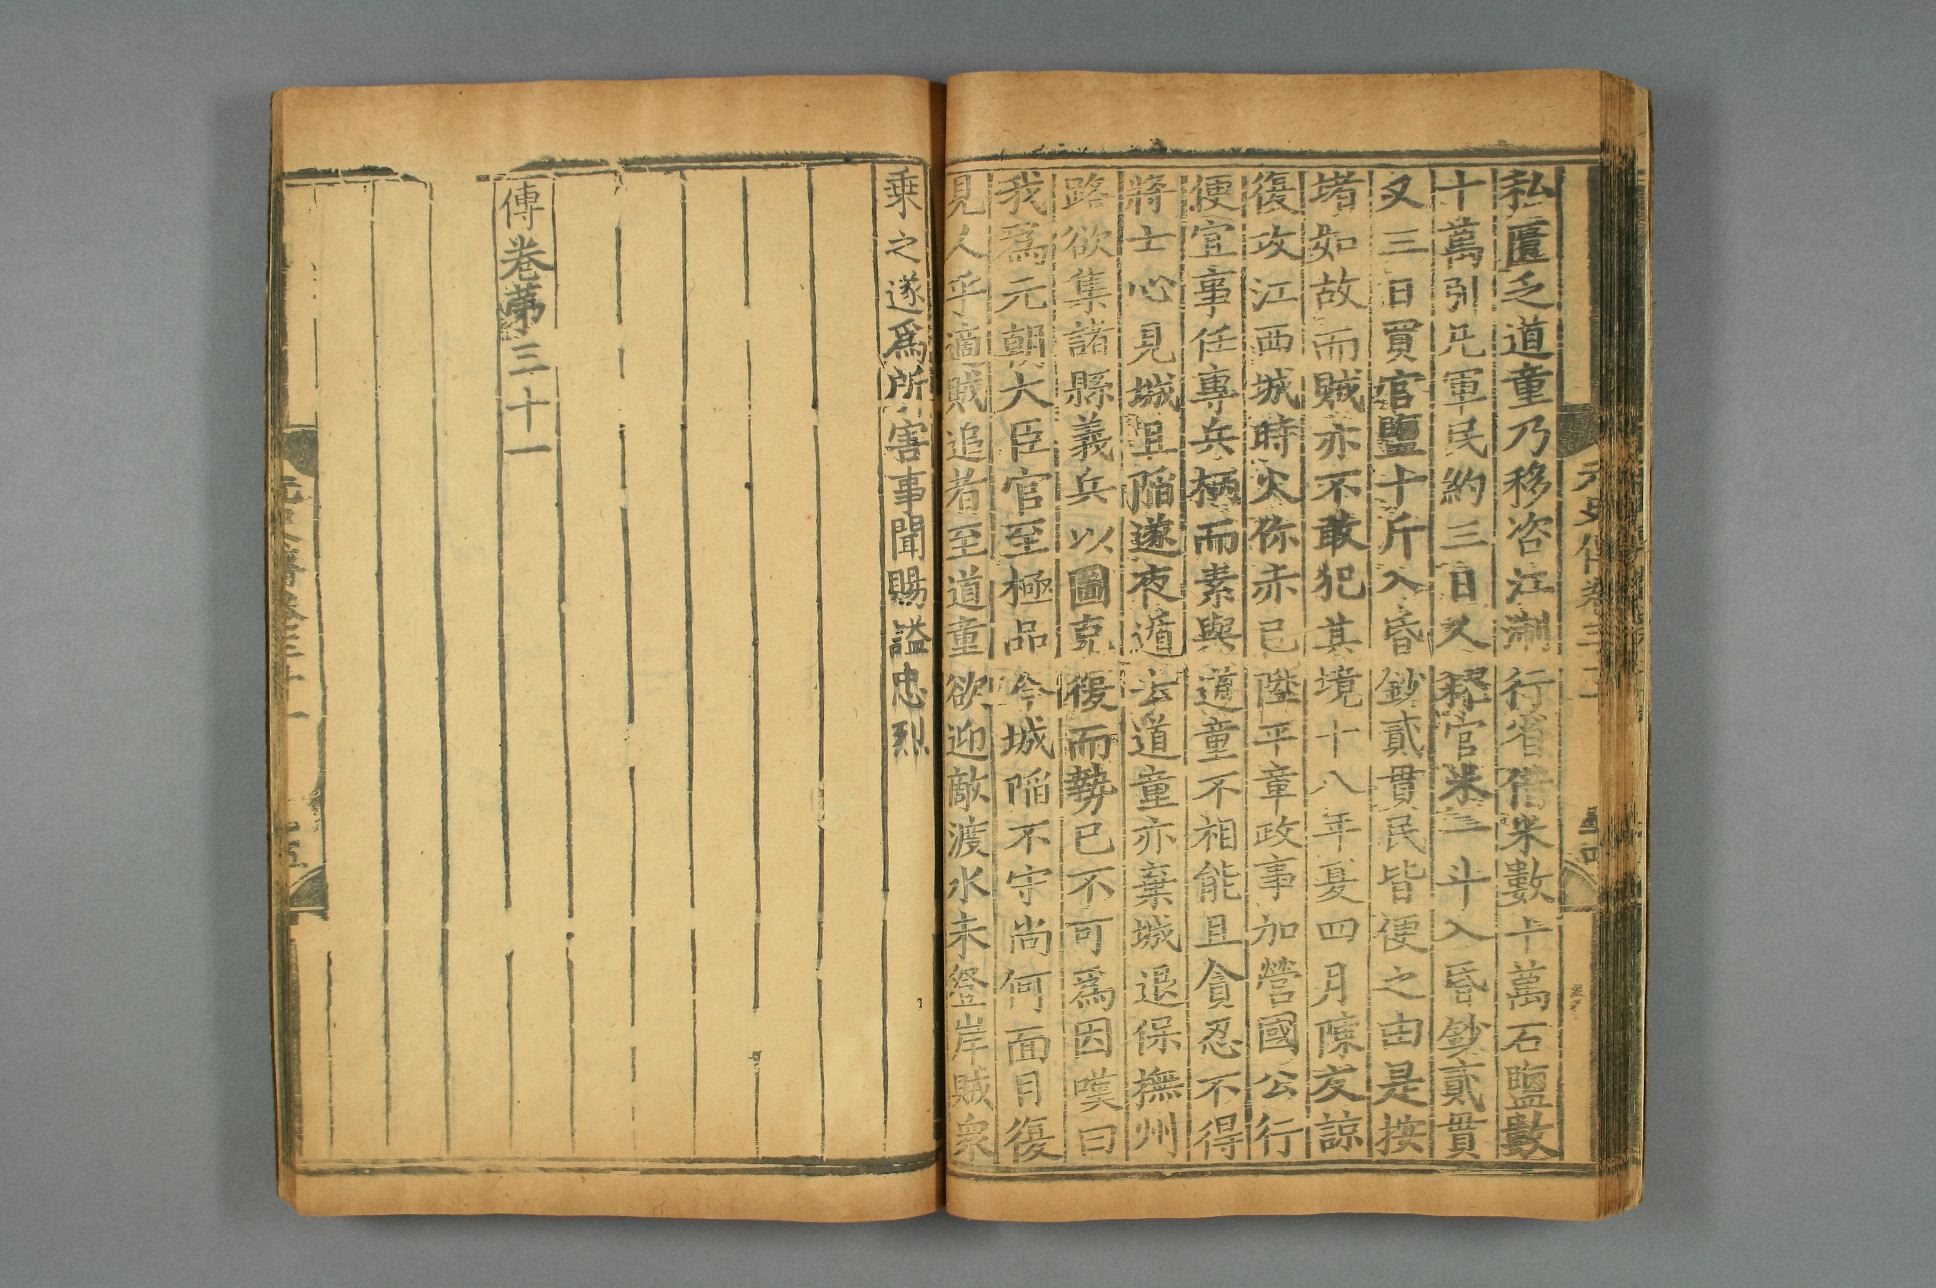 私匱乏道童乃移咨江浙行省借米數十萬石鹽數
十萬引凡軍民約三日入糴官米一斗入昏鈔貳貫
又三日買官鹽十斤入昏鈔貳貫民皆便之由是按
堵如故而賊亦不敢犯其境十八年夏四月陳友諒
復攻江西城時火你赤已陞平章政事加營國公行
便宜事任專兵柄而素與道童不相能且貪忍不得
將士心見城且陷遂夜遁去道童亦棄城退保撫州
路欲集諸縣義兵以圖克復而勢已不可爲因嘆曰
我爲元朝大臣官至極品今城陷不守尚何面目復
見人乎適賊追者至道童欲迎敵渡水未登岸賊衆
乘之遂爲所害事聞賜謚忠烈
傳卷第三十一
元史傳卷三十一